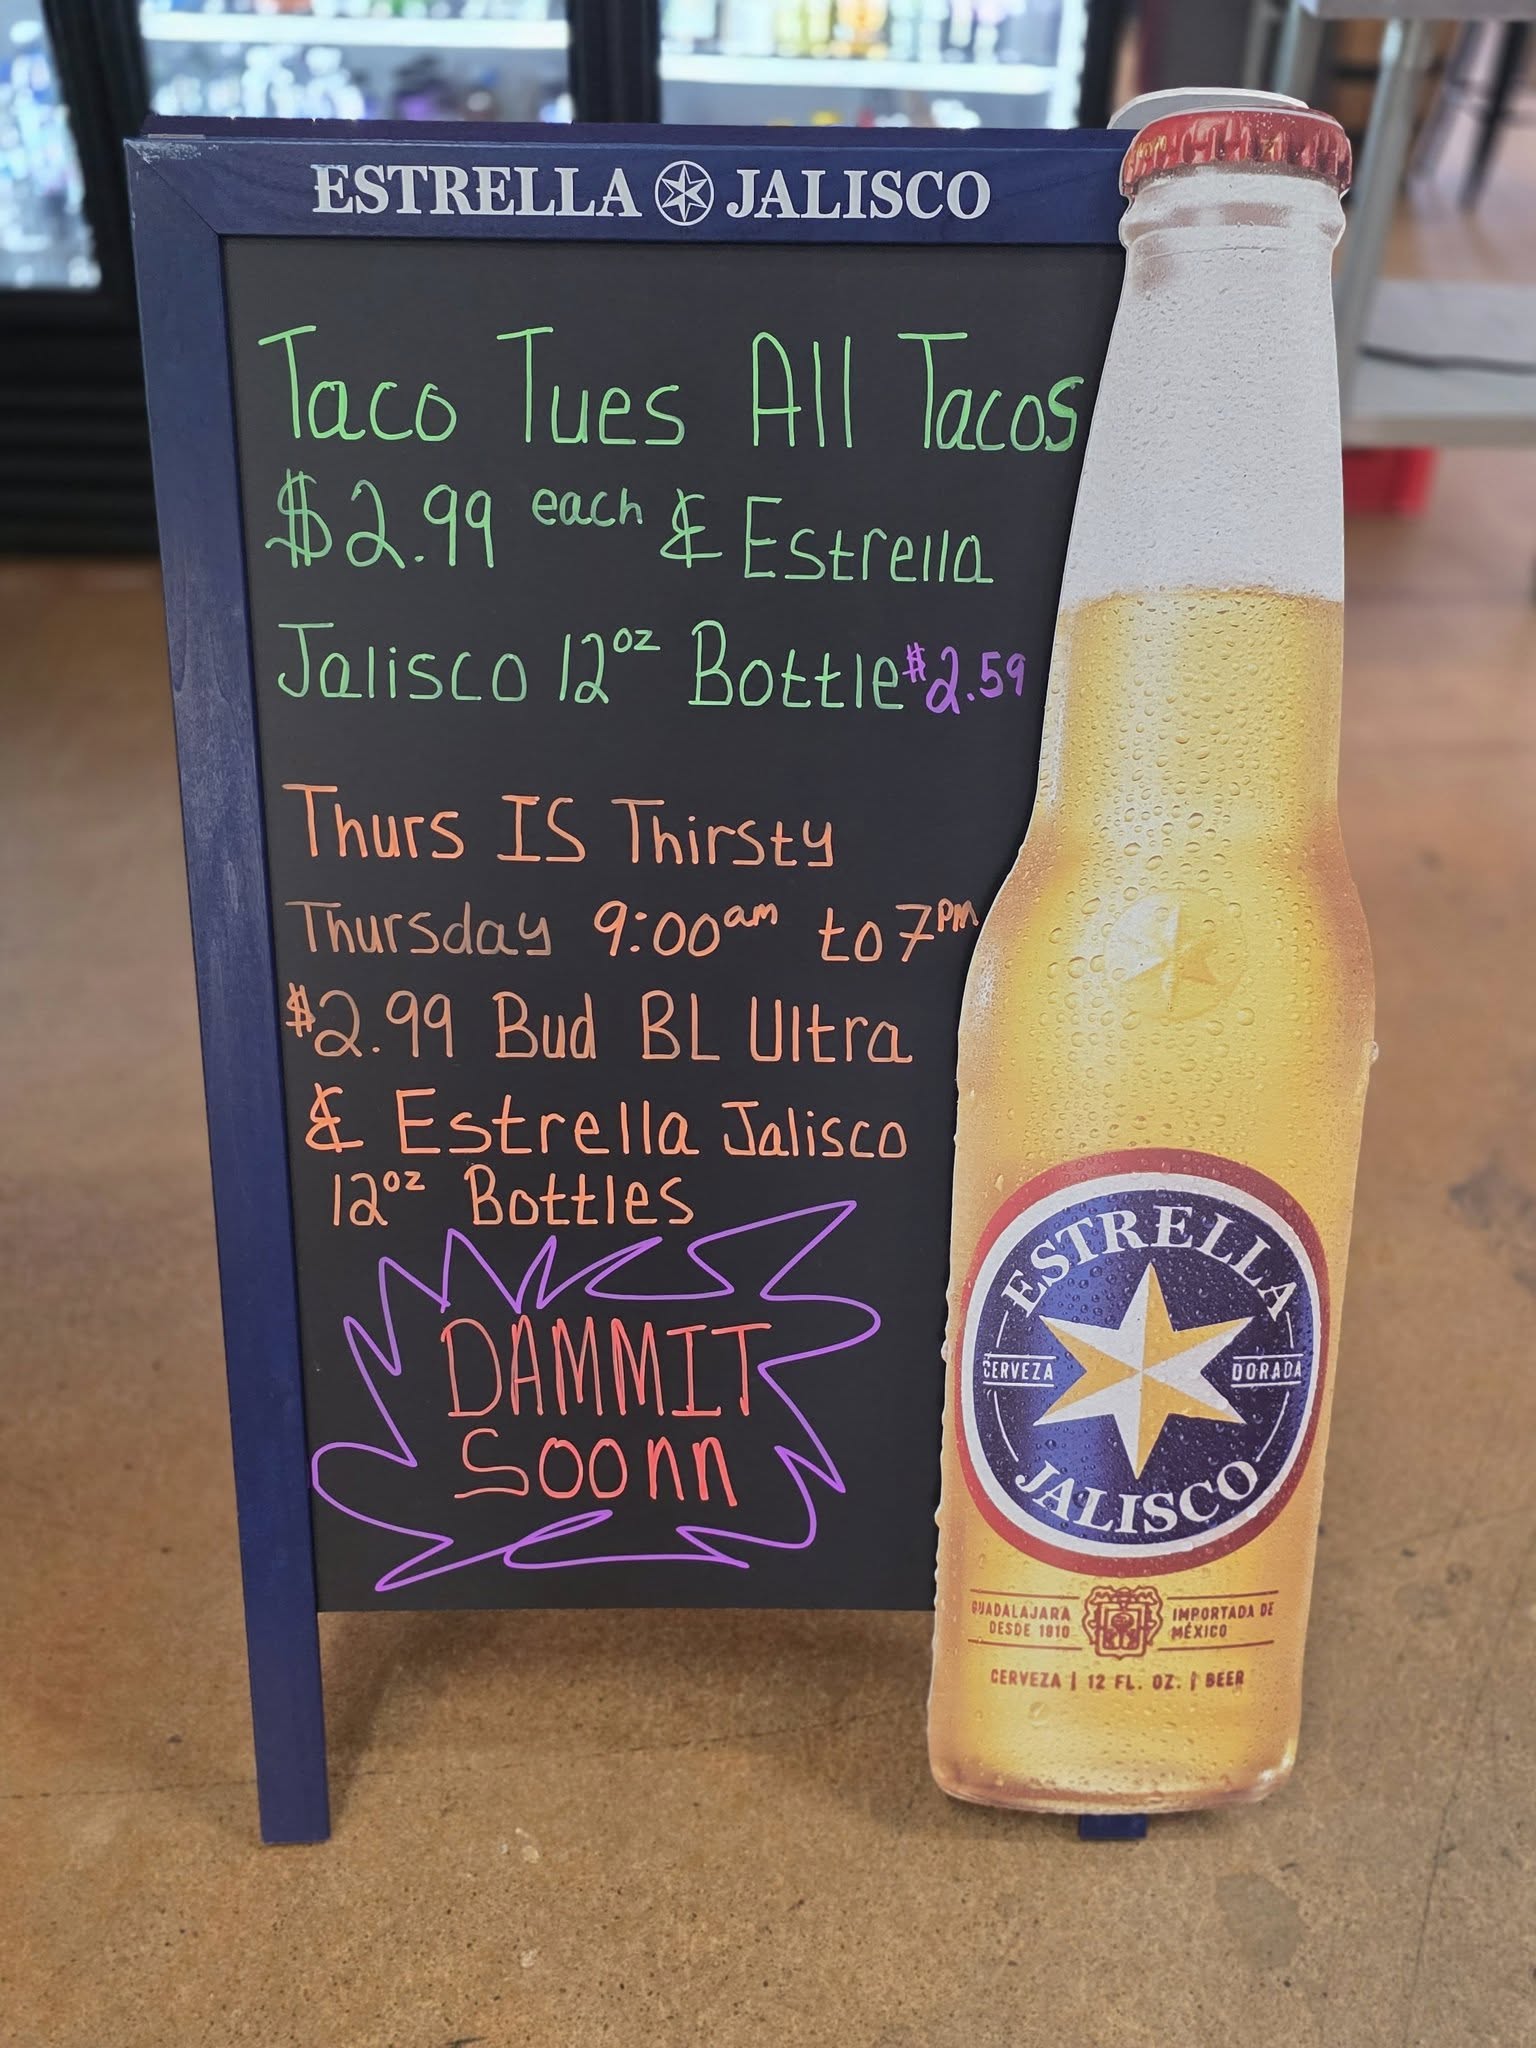 ESTRELLA JALISCO
Taco Tues All Tacos
$2.99 each & Estrella
Jalisco 12oz Bottle $2.59
Thurs IS Thirsty
Thursday 9:00am to 7pm
$2.99 Bud BL Ultra
& Estrella Jalisco
12oz Bottles
DAMMIT
Soonn
ESTRELLA
CERVEZA DORADA
JALISCO
GUADALAJARA DESDE 1910
IMPORTADA DE MÉXICO
CERVEZA | 12 FL. OZ. | BEER